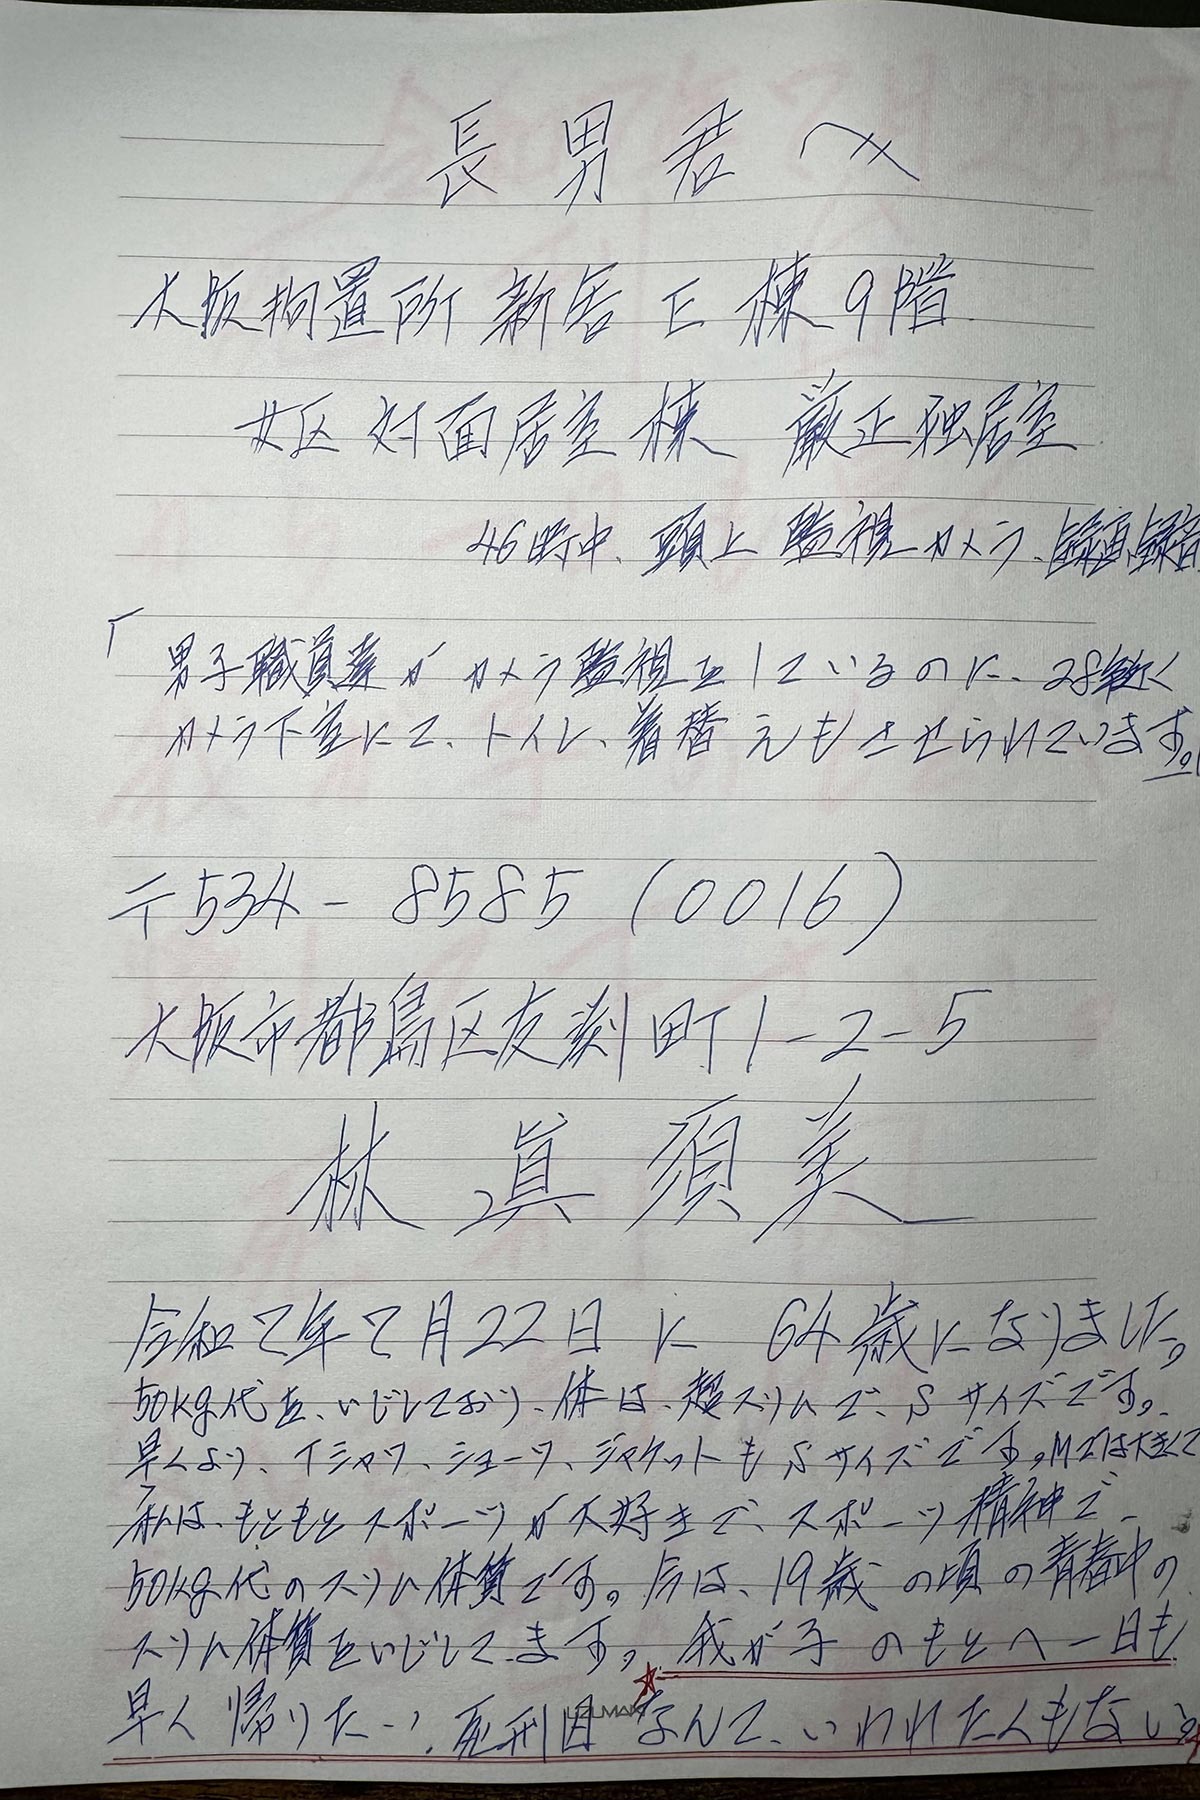 長男君へ
大阪拘置所 新舎 E 棟 9階
女区 対面居室棟 厳正独居室
46時中、頭上 監視カメラ、録画、録音
「男子職員達が カメラ監視をしているのに、28年近く
カメラ下室にて、トイレ、着替えもさせられています。」
〒534-8585 (0016)
大阪市都島区友渕町1-2-5
林 眞須美
令和7年7月22日に 64歳になりました。
50kg代を、いじしており、体は、超スリムで、Sサイズです。
早くより、Tシャツ、ショーツ、ジャケットもSサイズです。Mでは大きくて
私は、もともとスポーツが大好きで、スポーツ精神で、
50kg代のスリム体質です。今は、19歳の頃の青春中の
スリム体質をいじしてます。我が子のもとへ一日も
早く帰りたい、死刑囚なんて、いわれたくもない
UZUMAKI